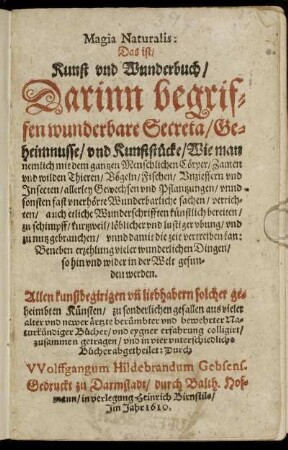 Magia Naturalis:
Das ist/
Kunst vnd Wunderbuch/
Darinn begrif-
fen wunderbare Secreta/Ge-
heimnusse/vnd Kunststücke/Wie man
nemlich mit dem gantzen Menschlichen Cörper/Zamen
vnd wilden Thieren/Vögeln/Fischen/Vnzieffern vnd
Insecten/allerley Gewechsen vnd Pflantzungen/vnnd
sonsten fast vnerhörte Wunderbarliche sachen/verrich-
ten/auch etliche Wunderschrifften künstlich bereiten/
zu schimpff/kurtzweil/löblicher vnd lustiger vbung/vnd
zu nutz gebrauchen/vnnd damit die zeit vertreiben kan:
Beneben erzehlung vieler wunderlichen Dingen/
so hin vnd wider in der Welt gefun-
den werden.
Allen kunstbegirigen vñ liebhabern solcher ge-
heimbten Künsten/zu sonderlichen gefallen aus vieler
alter vnd newer ärtzte berümbter vnd bewehrter Na-
turkündiger Bücher/vnd eygner erfahrung colligirt/
zusammen getragen/vnd in vier vnterschiedliche
Bücher abgetheilet: Durch
VVolffgangum Hildebrandum Gebsens.
Gedruckt zu Darmstadt/durch Balth. Hof-
mann/in verlegung Heinrich Birnstils/
Im Jahr 1610.